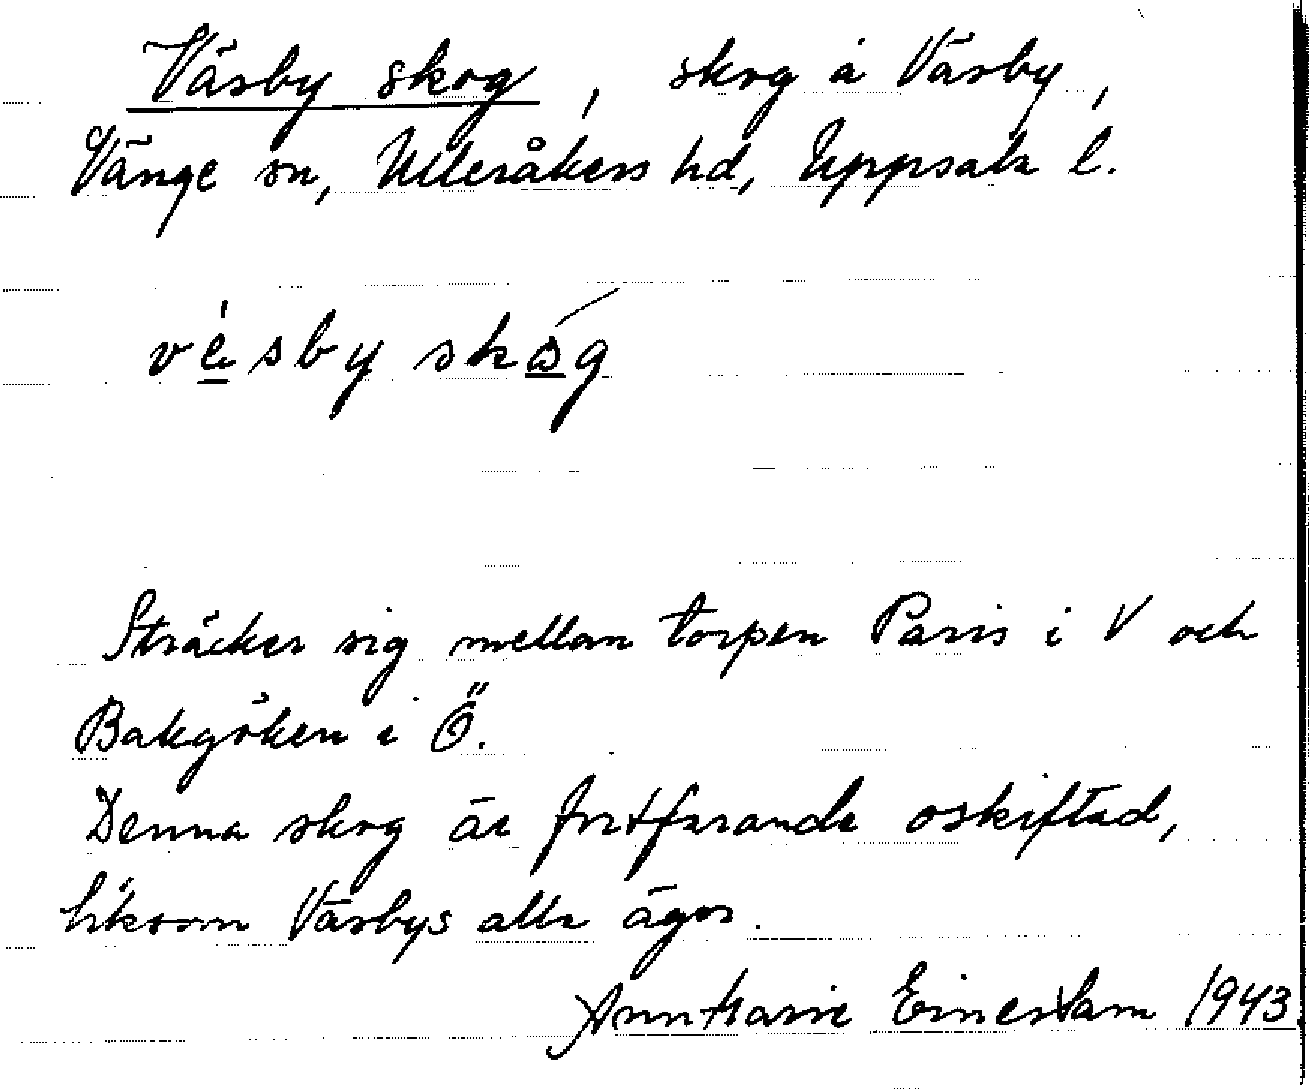 Väsby skog, skog å Väsby,
Vänge sn, Ulleråkers hd, Uppsala l.
vésby skóg
Sträcker sig mellan torpen Paris i V och
Bakgöken i Ö.
Denna skog är fortfarande oskiftad,
liksom Väsbys alla ägor.
Ann Marie 1943.